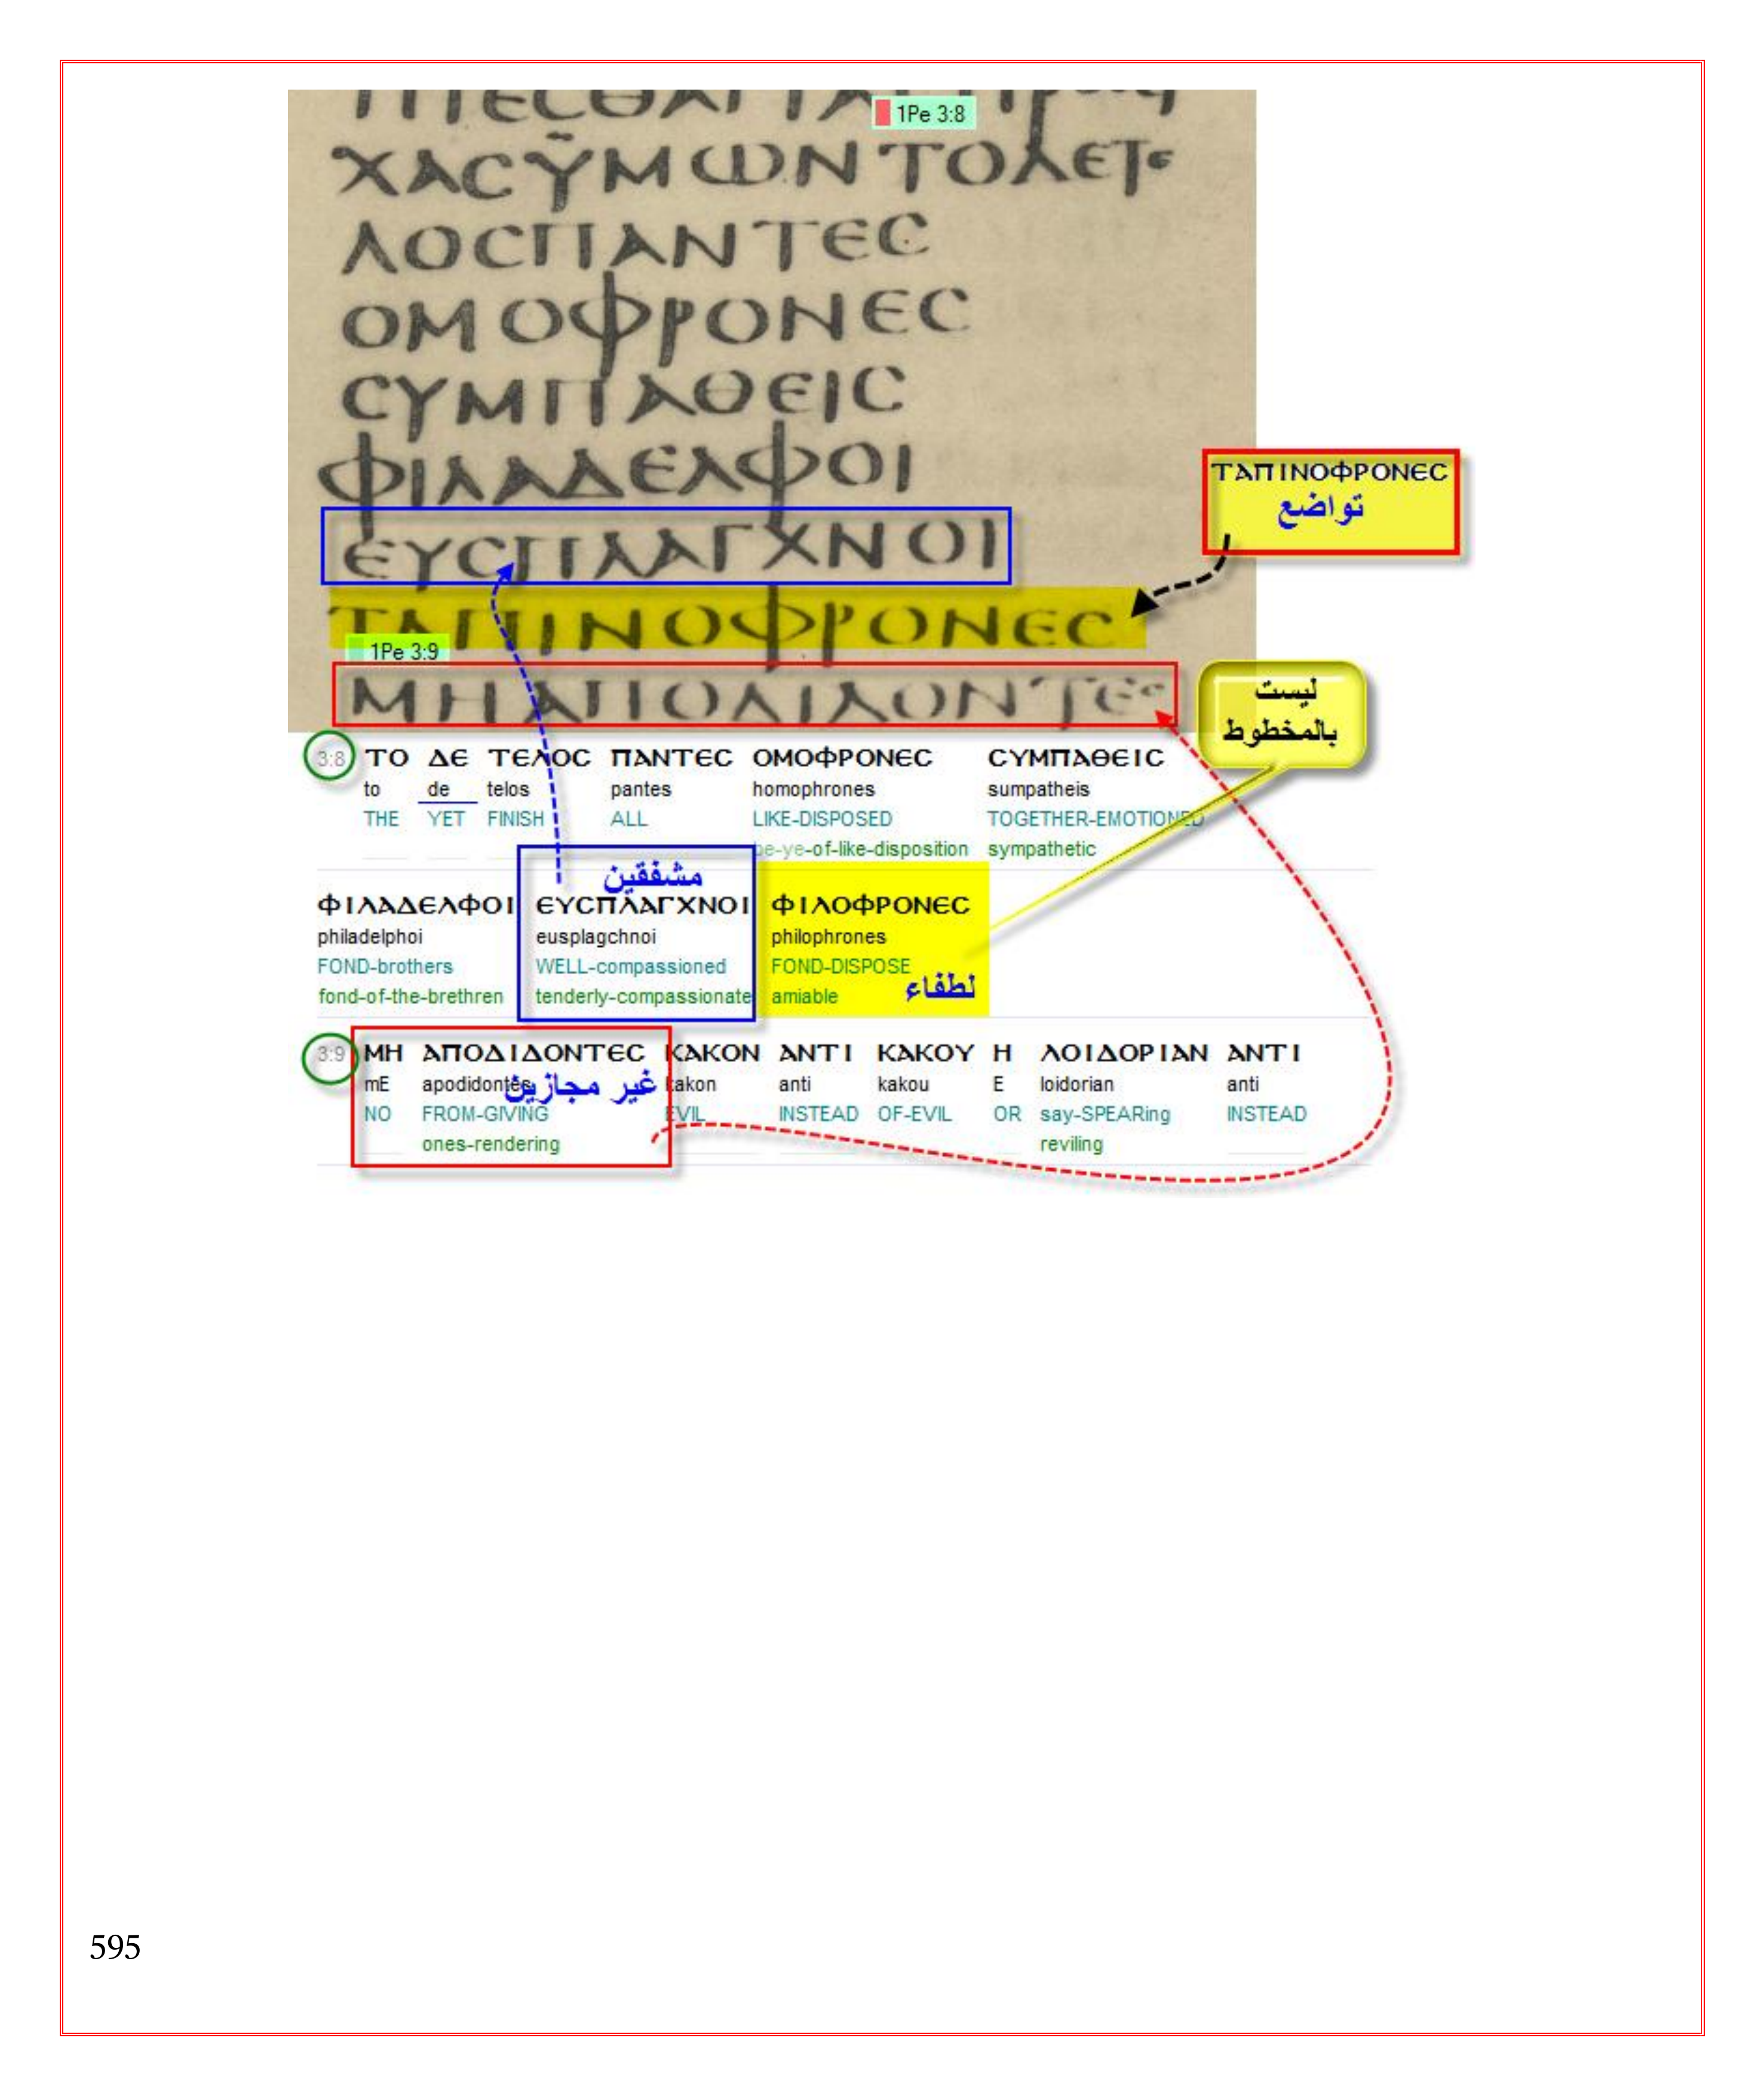 1Pe 3:8
ΧΑCΫΜΩΝΤΟΔΕΤΕ
ΛΟCΠΑΝΤΕC
ΟΜΟΦΡΟΝΕC
CΥΜΠΑΘΕΙC
ΦΙΛΑΔΕΛΦΟΙ
ΕΥCΠΛΑΓΧΝΟΙ
ΤΑΠΙΝΟΦΡΟΝΕC
1Pe 3:9
ΜΗΑΠΟΔΙΔΟΝΤΕC
ΤΑΠΙΝΟΦΡΟΝΕC
تواضع
ليست
بالمخطوط
3:8 ΤΟ ΔΕ ΤΕΛΟC ΠΑΝΤΕC ΟΜΟΦΡΟΝΕC CΥΜΠΑΘΕΙC
to de telos pantes homophrones sumpatheis
THE YET FINISH ALL LIKE-DISPOSED TOGETHER-EMOTIONED
be-ye-of-like-disposition sympathetic
مشفقين
ΦΙΛΑΔΕΛΦΟΙ ΕΥCΠΛΑΓΧΝΟΙ ΦΙΛΟΦΡΟΝΕC
philadelphoi eusplagchnoi philophrones
FOND-brothers WELL-compassioned FOND-DISPOSE
fond-of-the-brethren tenderly-compassionate amiable
لطفاء
3:9 ΜΗ ΑΠΟΔΙΔΟΝΤΕC ΚΑΚΟΝ ΑΝΤΙ ΚΑΚΟΥ Η ΛΟΙΔΟΡΙΑΝ ΑΝΤΙ
mE apodidontes kakon anti kakou E loidorian anti
غير مجازين
NO FROM-GIVING EVIL INSTEAD OF-EVIL OR say-SPEARing INSTEAD
ones-rendering reviling
595